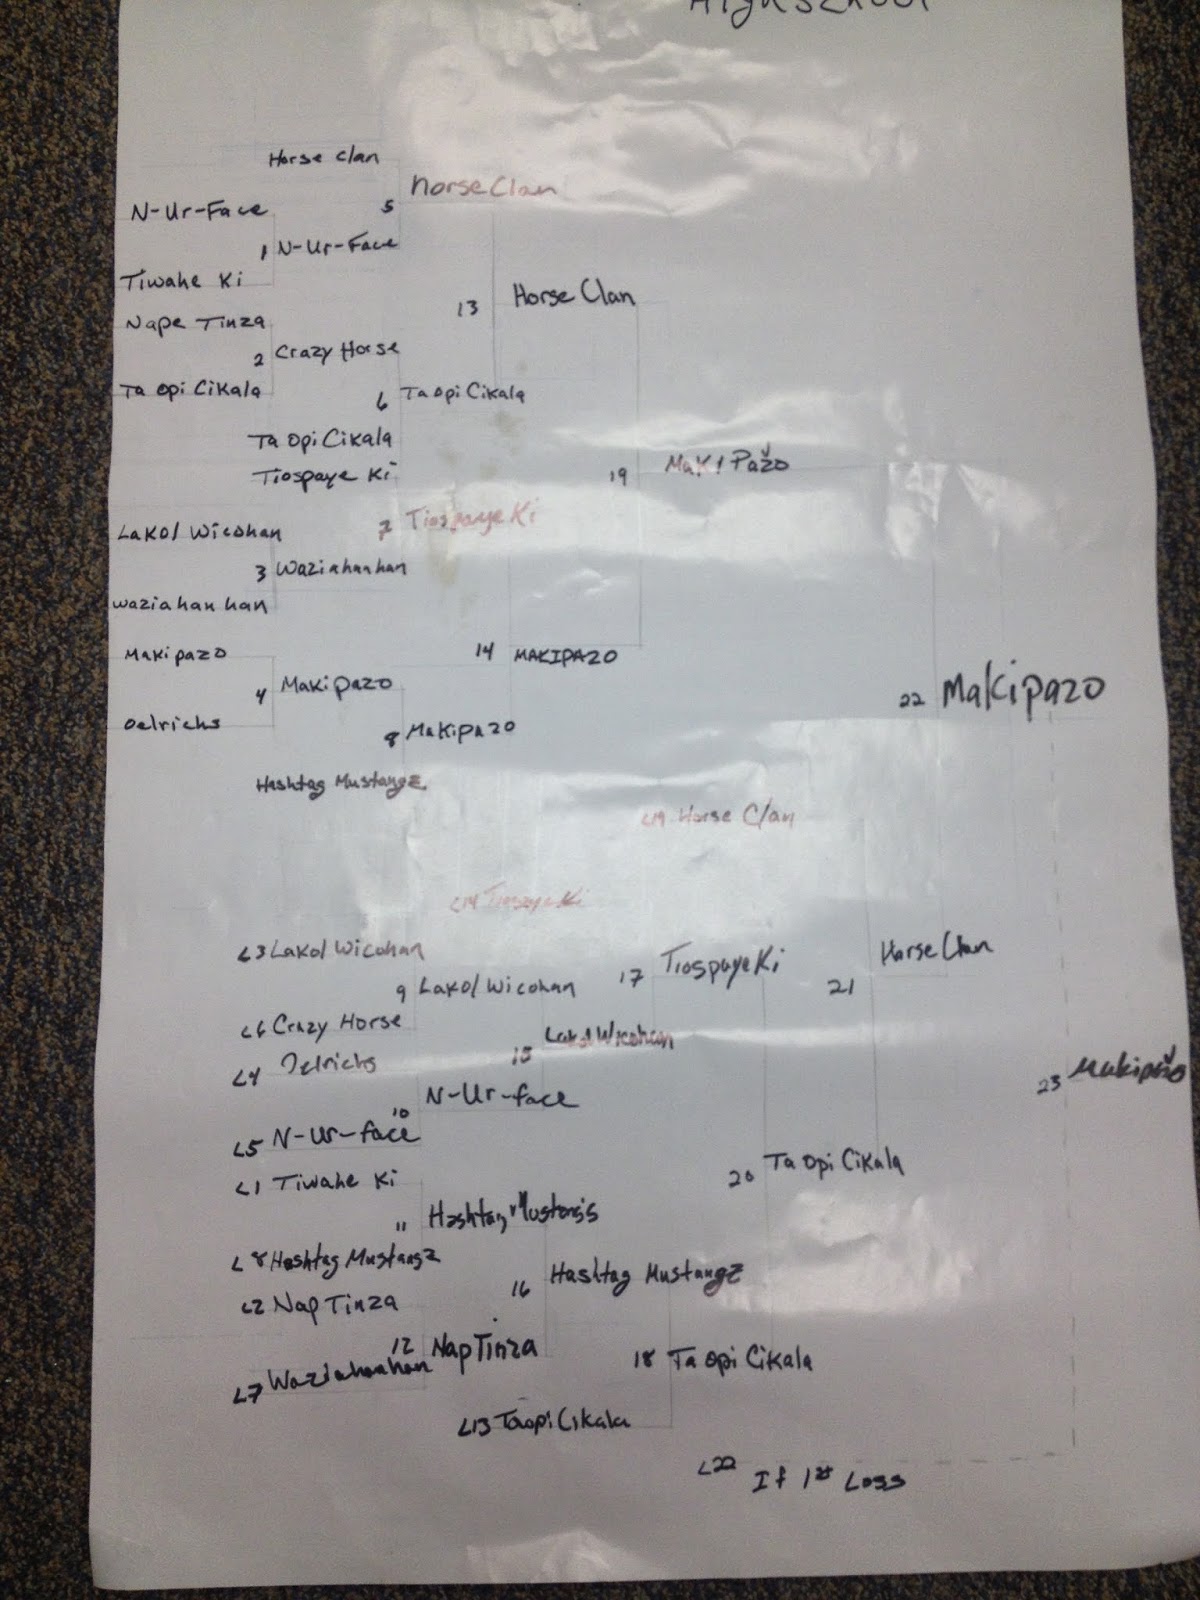 Highschool
Horse Clan
Horse Clan
N-Ur-Face
5
1 N-Ur-Face
Tiwahe Ki
13 Horse Clan
Nape Tinza
2 Crazy Horse
Ta Opi Cikala
6 Ta Opi Cikala
Ta Opi Cikala
19 MaKi Pažo
Tiospaye Ki
7 Tiospaye Ki
Lakol Wicohan
3 Waziahanhan
waziahanhan
14 MAKIPAZO
Makipazo
4 Makipazo
22 Makipazo
Oelrichs
8 Makipazo
Hashtag Mustangz
L19 Horse Clan
L14 Tiospaye Ki
L3 Lakol Wicohan
Horse Clan
17 Tiospaye Ki
21
9 Lakol Wicohan
L6 Crazy Horse
15 Lakol Wicohan
L4 Oelrichs
23 Makipažo
10 N-Ur-face
L5 N-Ur-face
20 Ta Opi Cikala
L1 Tiwahe Ki
11 Hashtag Mustangs
L8 Hashtag Mustangz
16 Hashtag Mustangz
L2 Nap Tinza
12 Nap Tinza
18 Ta Opi Cikala
L7 Waziahanhan
L13 Taopi Cikala
L22 If 1st Loss